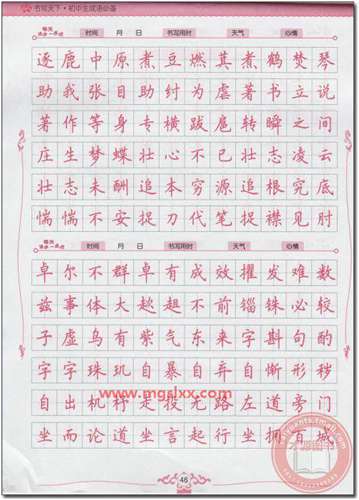 书写天下·初中生成语必备
每天进步一点点 时间 月 日 书写用时 天气 心情
逐鹿中原煮豆燃萁煮鹤焚琴
助我张目助纣为虐著书立说
著作等身专横跋扈转瞬之间
庄生梦蝶壮心不已壮志凌云
壮志未酬追本穷源追根究底
惴惴不安捉刀代笔捉襟见肘
每天进步一点点 时间 月 日 书写用时 天气 心情
卓尔不群卓有成效擢发难数
兹事体大趑趄不前锱铢必较
子虚乌有紫气东来字斟句酌
字字珠玑自暴自弃自惭形秽
www.mgslxx.com
自出机杼走投无路左道旁门
坐而论道坐言起行坐拥百城
46